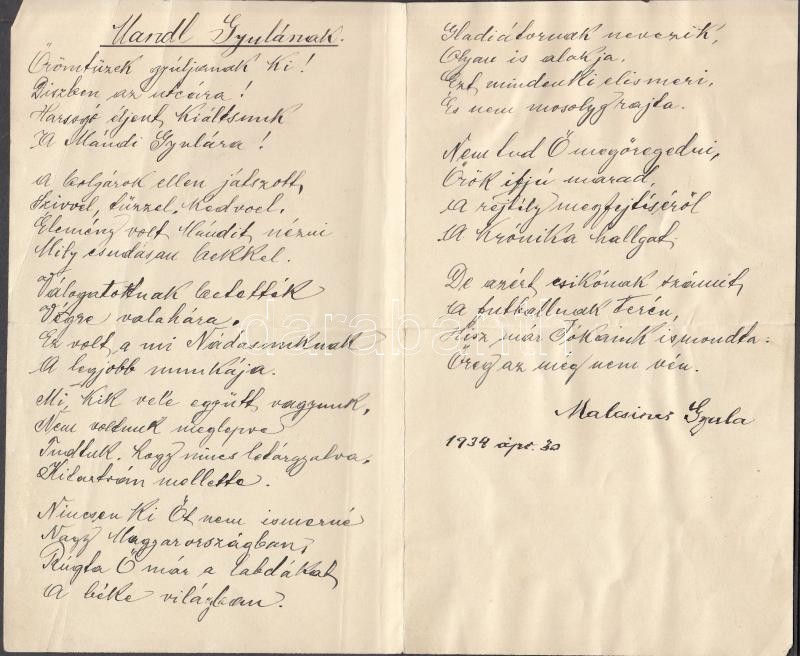 Mandl Gyulának.
Örömtüzek gyúljanak ki!
Diszben az utcára!
Harsogó éljent kiáltsunk
A Mándi Gyulára!
A bolgárok ellen játszott,
Szivvel, tüzzel, kedvvel.
Élemény volt Mandit nézni
Mily csudásan bekkel.
Válogatottnak betették
Végre valahára,
Ez volt a mi Nádasunknak
A legjobb munkája.
Mi, kik vele együtt vagyunk,
Nem voltunk meglepve
Tudtuk, hogy nincs letárgyalva,
Kitartván mellette.
Nincsen ki Őt nem ismerné
Nagy Magyarországban,
Rúgta Ő már a labdákat
A béke világban.
Gladiátornak nevezik,
Olyan is alakja.
Ezt mindenki elismeri,
És nem mosolyg rajta.
Nem tud Ő megöregedni,
Örök ifjú marad,
A rejtély megfejtéséről
A krónika hallgat.
De azért csikónak számit
A futballnak terén,
Hisz már Jókaink is mondta:
Öreg az meg nem vén.
Gyula
1934 ápr. 30
darabanth